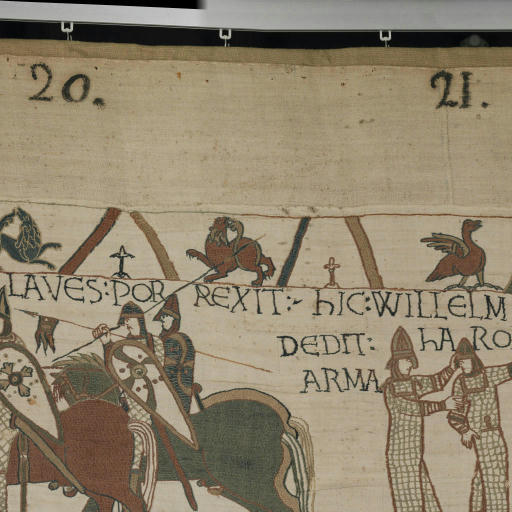 20. 21.
LAVES:POR REXIT:- hIC:WILLELM
DEDIT: hA RO
ARMA